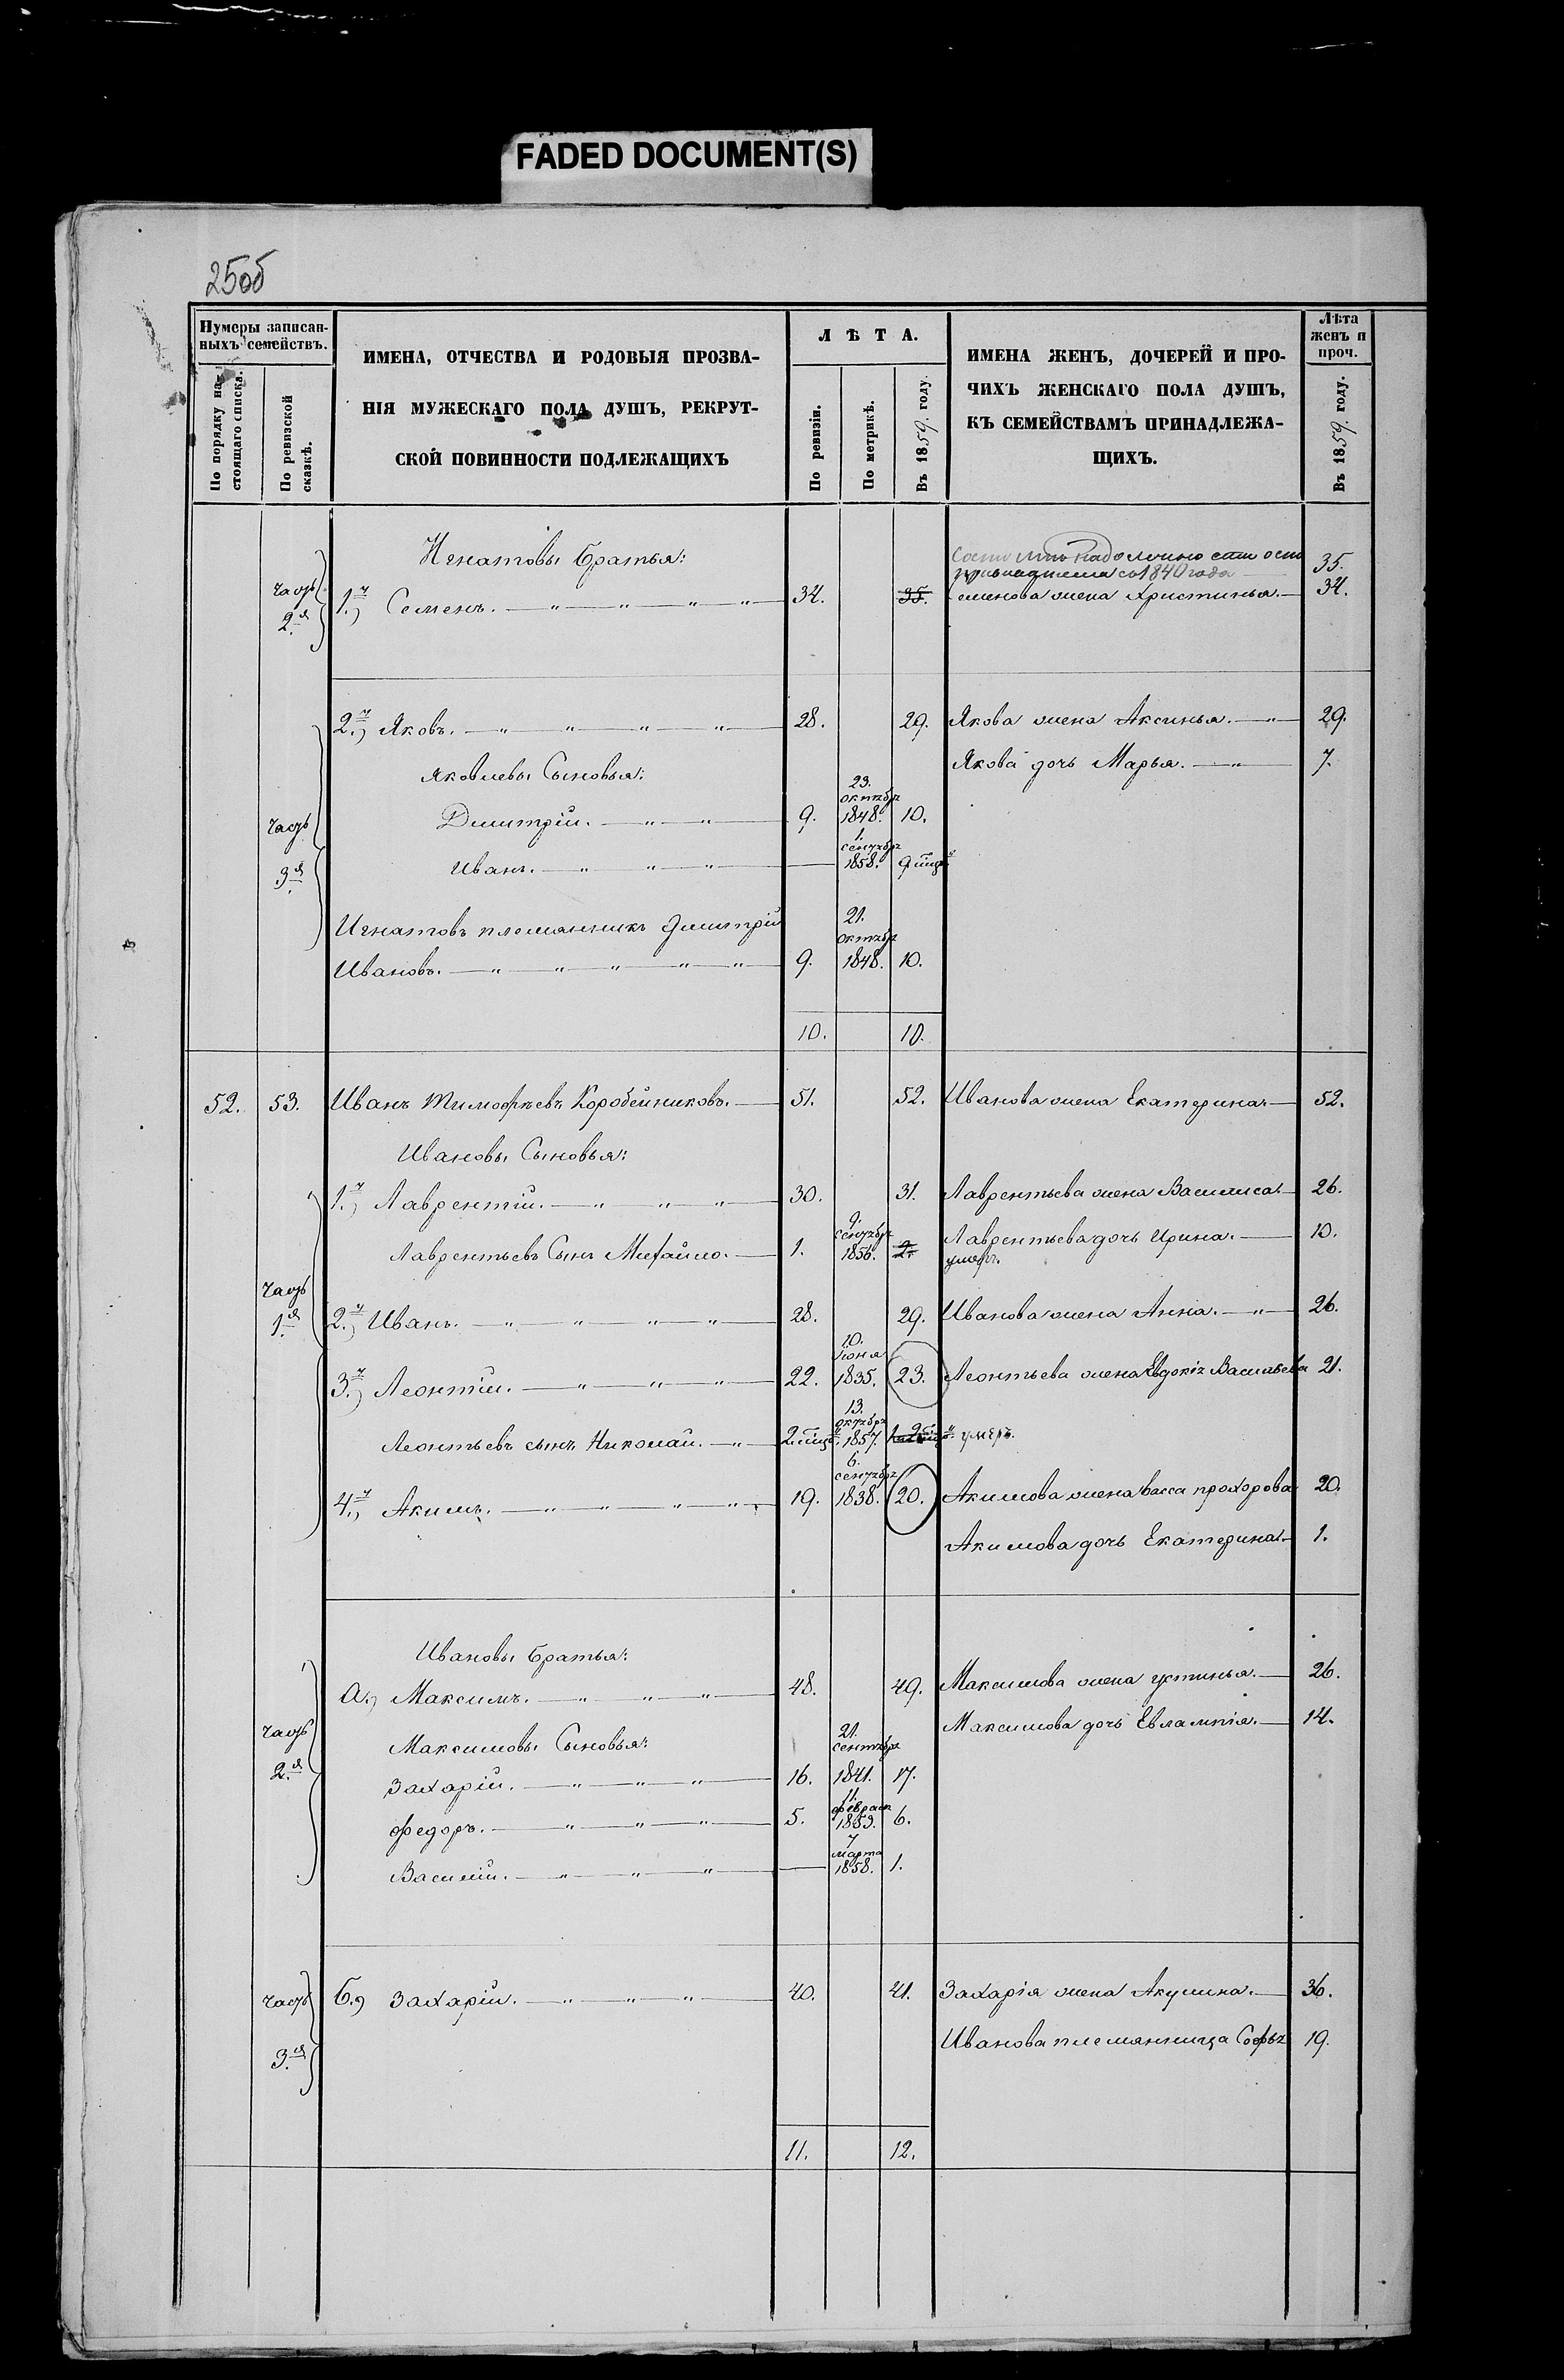 FADED DOCUMENT(S)
25об
Нумеры записан-
ныхъ семействъ.
По порядку на-
стоящаго списка.
По ревизской
сказкѣ.
ИМЕНА, ОТЧЕСТВА И РОДОВЫЯ ПРОЗВА-
НІЯ МУЖЕСКАГО ПОЛА ДУШЪ, РЕКРУТ-
СКОЙ ПОВИННОСТИ ПОДЛЕЖАЩИХЪ
ЛѢТА.
По ревизіи.
По метрикѣ.
Въ 1859. году.
ИМЕНА ЖЕНЪ, ДОЧЕРЕЙ И ПРО-
ЧИХЪ ЖЕНСКАГО ПОЛА ДУШЪ,
КЪ СЕМЕЙСТВАМЪ ПРИНАДЛЕЖА-
ЩИХЪ.
Лѣта
женъ и
проч.
Въ 1859. году.
Игнатовы братья:
съ 1840 года 35.
часть 2.я 1.й) Семенъ. 34. 35. Семенова жена Христинья. 34.
2.й) Яковъ. 28. 29. Якова жена Аксинья. 29.
Яковлевы Сыновья: Якова дочь Марья. 7.
23.
октября
часть Димитрій. 9. 1848. 10.
1.
сентября
3.я Иванъ. 1858. 9 мцъ
Игнатовъ племянникъ Дмитрій 21.
октября
Ивановъ. 9. 1848. 10.
10. 10.
52. 53. Иванъ Тимофѣевъ Коробейниковъ. 51. 52. Иванова жена Екатерина. 52.
Ивановы Сыновья:
1.й) Лаврентій. 30. 31. Лаврентьева жена Василиса. 26.
9.
сентября Лаврентьева дочь Ирина. 10.
Лаврентьевъ Сынъ Михайло. 1. 1856. 2. умеръ.
часть
1.я 2.й) Иванъ. 28. 29. Иванова жена Анна. 26.
10.
іюня
3.й) Леонтій. 22. 1835. 23. Леонтьева жена Евдокія Васильева 21.
13.
октября
Леонтьевъ сынъ Николай. 2. мцъ. 1857. умеръ.
6.
сентября
4.й) Акимъ. 19. 1838. 20. Акимова жена Васса Прохорова 20.
Акимова дочь Екатерина. 1.
Ивановы братья:
а.) Максимъ. 48. 49. Максимова жена Устинья. 26.
часть Максимовы Сыновья: Максимова дочь Евлампія. 14.
21.
сентября
2.я Захарій. 16. 1841. 17.
11.
февраля
Федоръ. 5. 1853. 6.
7
марта
Василій. 1858. 1.
часть б.) Захарій. 40. 41. Захарія жена Акулина. 36.
3.я Иванова племянница Софья 19.
11. 12.